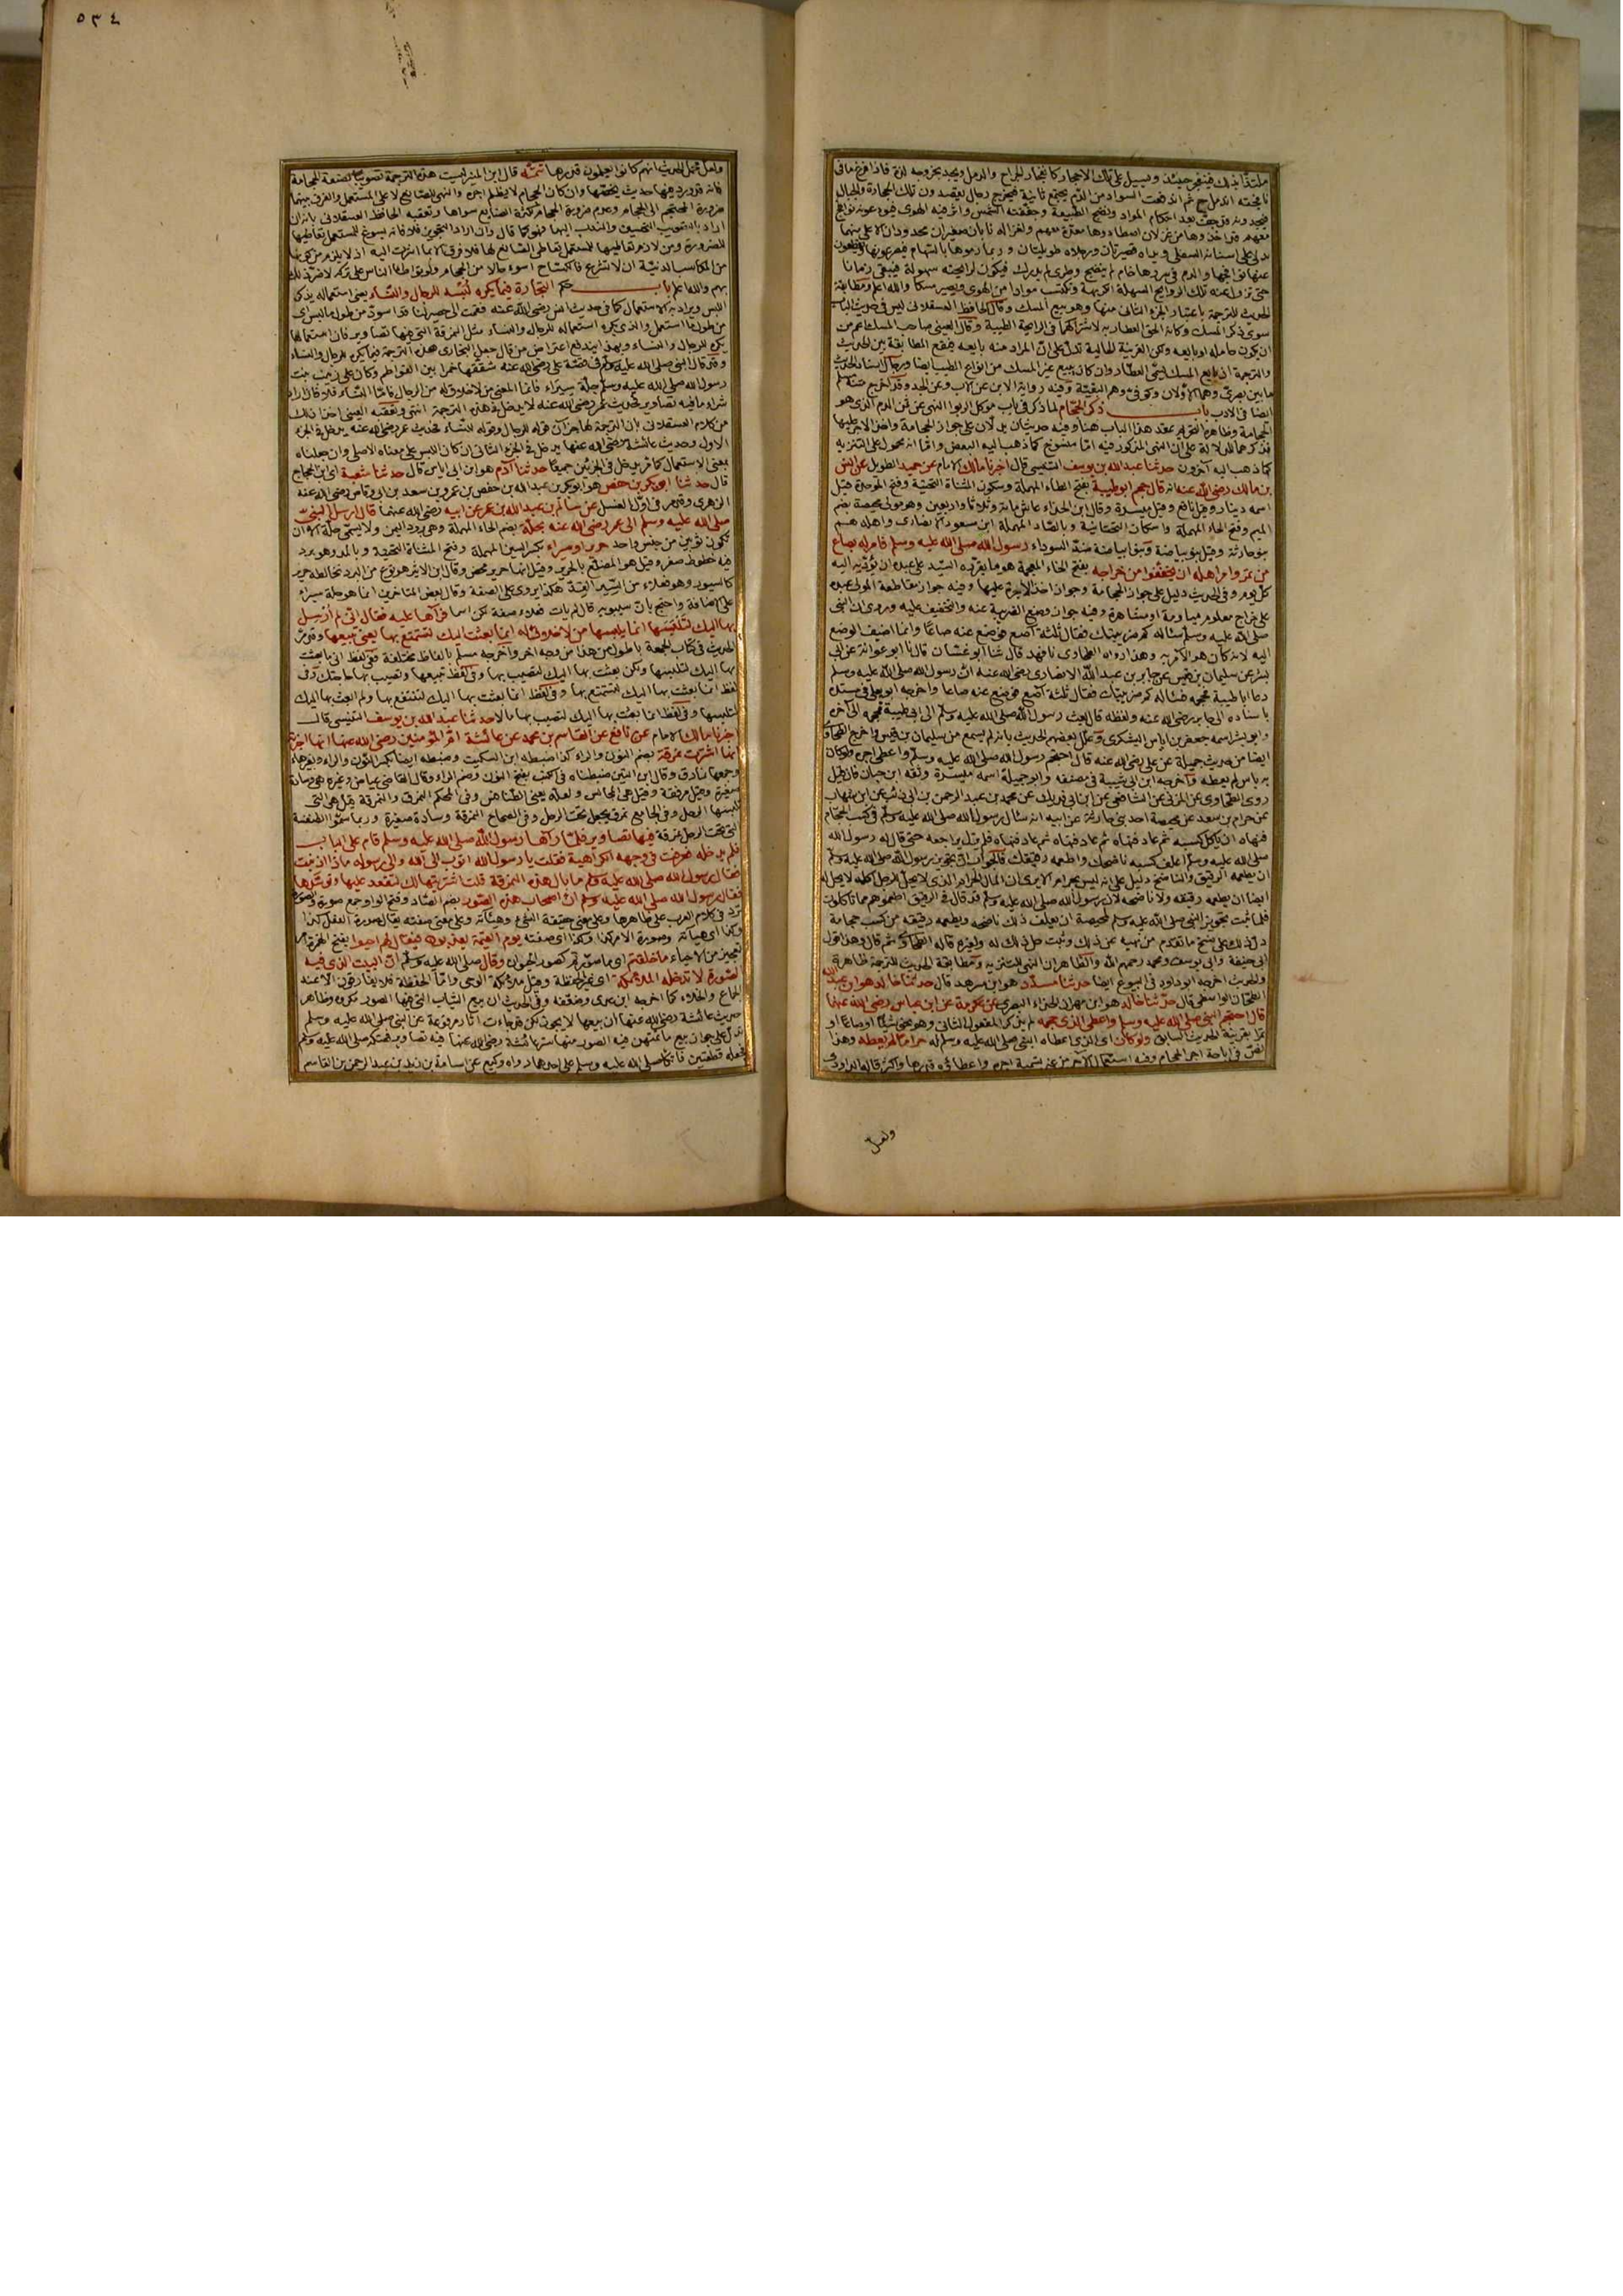 ملتذا بذلك فينفجر حينئذ ويسيل على تلك الاحجار كانفجار الجراح والدمل ويجد بخروجه لذة فاذا فرغ ما في
نافجته اندمل ثم اندفعت السواد من الدم يجتمع ثانية فيخرج رجال يقصدون تلك الحجارة والجبال
فيجدونه قد جف بعد احكام المواد ونضج الطبيعة وجففته الشمس واثر فيه الهوى
عنها نوافجها والدم في سررها خام لم ينضج وطري لم يدرك فيكون لرايحته سهولة فيبقى زمانا
حتى تزول عنه تلك الروايح السهلة الكريهة وتكتسب موادا من الهوى ويصير مسكا والله اعلم ومطابقة
الحديث للترجمة باعتبار الجزء الثاني منها وهو بيع المسك وقال الحافظ العسقلاني ليس في حديث الباب
سوى ذكر المسك وكانه الحق العطار به لاشتراكهما في الرايحة الطيبة وقال العيني صاحب المسك اعم من
ان يكون حامله او بايعه ولكن القرينة الحالية تدل على ان المراد منه بايعه فتقع المطابقة بين الحديث
والترجمة لان بايع المسك يسمى العطار وان كان يبيع غير المسك من انواع الطيب ايضا ورجال اسناد الحديث
ما بين بصري وهما الاولان وكوفي وهم البقية وفيه رواية الابن عن الاب وعن الجد وقد اخرج متنه مسلم
ايضا في الادب باب ذكر الحجام لما ذكر في باب موكل الربوا النهي عن ثمن الدم الذي هو
الحجامة وظاهره التحريم عقد هذا الباب هنا وفيه حديثان يدلان على جواز الحجامة واخذ الاجرة عليها
فذكرهما للدلالة على ان النهي المذكور فيه اما منسوخ كما ذهب اليه البعض واما انه محمول على التنزيه
كما ذهب اليه آخرون حدثنا عبد الله بن يوسف التنيسي قال اخبرنا مالك الامام عن حميد الطويل عن انس
بن مالك رضي الله عنه انه قال حجم ابو طيبة بفتح الطاء المهملة وسكون المثناة التحتية وفتح الموحدة قيل
اسمه دينار وقيل نافع وقيل ميسرة وقال ابن الحذاء عاش مائة وثلاثا واربعين وهو مولى محيصة بضم
الميم وفتح الحاء المهملة واسكان التحتانية وبالصاد المهملة ابن مسعود الانصاري واهله هم
بنو حارثة وقيل بنو بياضة رسول الله صلى الله عليه وسلم فامر له بصاع
من تمر وامر اهله ان يخففوا من خراجه بفتح الخاء المعجمة هو ما يقرره السيد على عبده ان يؤديه اليه
كل يوم وفي الحديث دليل على جواز الحجامة وجواز اخذ الاجرة عليها وفيه جواز مقاطعة المولى عبده
على خراج معلوم مياومة او مشاهرة وفيه جواز وضع الضريبة عنه والتخفيف عليه وروى ان النبي
صلى الله عليه وسلم سئاله كم ضريبتك فقال ثلثة آصع فوضع عنه صاعا وانما اضيف الوضع
اليه لانه كان هو الآمر به وهذا رواه الطحاوي نا فهد قال ثنا ابو غسان قال نا ابو عوانة عن ابي
بشر عن سليمان بن قيس عن جابر بن عبد الله الانصاري رضي الله عنه ان رسول الله صلى الله عليه وسلم
دعا ابا طيبة فحجمه فسئاله كم ضريبتك فقال ثلثة آصع فوضع عنه صاعا واخرجه ابو يعلى في مسنده
باسناده الى جابر رضي الله عنه ولفظه قال بعث رسول الله صلى الله عليه وسلم الى ابي طيبة فحجمه الى آخره
وابو بشر اسمه جعفر بن اياس اليشكري وعلل بعضهم الحديث بانه لم يسمع من سليمان بن قيس واخرج الطحاوي
ايضا من حديث جميلة عن علي رضي الله عنه قال احتجم رسول الله صلى الله عليه وسلم واعطى اجره ولو كان
به باس لم يعطه واخرجه ابن ابي شيبة في مصنفه وابو جميلة اسمه ميسرة وثقه ابن حبان فان قيل
روى الطحاوي عن المزني عن الشافعي عن ابن ابي فديك عن محمد بن عبد الرحمن بن ابي ذئب عن ابن شهاب
عن حرام بن سعد عن محيصة احد بني حارثة عن ابيه انه سئال رسول الله صلى الله عليه وسلم في كسب الحجام
فنهاه ان ياكل كسبه ثم عاد فنهاه ثم عاد فنهاه ثم عاد فنهاه فلم يزل يراجعه حتى قال له رسول الله
صلى الله عليه وسلم اعلف كسبه ناضحك واطعمه رقيقك فالجواب ان تجويز رسول الله صلى الله عليه وسلم
ان يطعمه الرقيق والناضح دليل على انه ليس بحرام الا يرى ان المال الحرام الذي لا يحل للرجل اكله لا يحل له
ايضا ان يطعمه رقيقه ولا ناضحه لان رسول الله صلى الله عليه وسلم قد قال في الرقيق اطعموهم مما تاكلون
فلما ثبت تجويز النبي صلى الله عليه وسلم لمحيصة ان يعلف ذلك ناضحه ويطعمه رقيقه من كسب حجامه
دل ذلك على نسخ ما تقدم من نهيه عن ذلك وثبت حل ذلك له ولغيره قاله الطحاوي ثم قال وهذا قول
ابي حنيفة وابي يوسف ومحمد رحمهم الله والظاهر ان النهي للتنزيه ومطابقة الحديث للترجمة ظاهرة
والحديث اخرجه ابو داود في البيوع ايضا حدثنا مسدد هو ابن مسرهد قال حدثنا خالد هو ابن عبد الله
الطحان الواسطي قال حدثنا خالد هو ابن مهران الحذاء البصري عن عكرمة عن ابن عباس رضي الله عنهما
قال احتجم النبي صلى الله عليه وسلم واعطى الذي حجمه لم يذكر المفعول الثاني وهو نحو شيئا او صاعا او
تمرا بقرينة الحديث السابق ولو كان اي الذي اعطاه النبي صلى الله عليه وسلم له حراما لم يعطه وهذا
نص في اباحة اجر الحجام وفيه استعمال الاجير من غير تسمية اجره واعطائه قدرها واكثر قاله الداودي
ولعل
٥٣٤
ولعل محمل الحديث انهم كانوا يعلمون قدرها تتمه قال ابن المنير ليست هذه الترجمة تصويبا لصنعة الحجامة
فانه قد ورد فيها حديث يخصها وان كان الحجام لا يظلم اجره والنهي للصانع لا على المستعمل والفرق بينهما
ضرورة المحتجم الى الحجام وعدم ضرورة الحجام لكثرة الصنايع سواها وتعقبه الحافظ العسقلاني بانه ان
اراد بالتصويب التحسين والندب اليها فهو كما قال وان اراد التجويز فلا فانه يسوغ للمستعمل تعاطيها
للضرورة ومن لازم تعاطيها للمستعمل تعاطي الصانع لها فلا فرق الا بما اشرت اليه اذ لا يلزم من كونها
من المكاسب الدنيئة ان لا تشرع فالكساح اسوء حالا من الحجام ولو تواطأ الناس على تركه لاضر ذلك
بهم والله اعلم باب حكم التجارة فيما يكره لبسه للرجال والنساء يعني استعماله يذكر
اللبس ويراد به الاستعمال كما في حديث انس رضي الله عنه فقمت الى حصير لنا قد اسود من طول ما لبس اي
من طول ما استعمل والذي يكره استعماله للرجال والنساء مثل النمرقة التي فيها تصاوير فان استعمالها
يكره للرجال والنساء وبهذا يندفع اعتراض من قال جعل البخاري هذه الترجمة فيما يكره للرجال والنساء
وقد قال النبي صلى الله عليه وسلم في قصة علي رضي الله عنه شققها خمرا بين الفواطم وكان على زينب بنت
رسول الله صلى الله عليه وسلم حلة سيراء فانما المعني من لاخلاق له من الرجال فاما النساء فلا فان اراد
شراء ما فيه تصاوير فحديث عمر رضي الله عنه لا يدخل في هذه الترجمة انتهى وتعقبه العيني اخذ ذلك
من كلام العسقلاني بان الترجمة لها جزآن قوله للرجال وقوله للنساء فحديث عمر رضي الله عنه يدخل في الجزء
الاول وحديث عائشة رضي الله عنها يدخل في الجزء الثاني ان كان اللبس على معناه الاصلي وان جعلناه
بمعنى الاستعمال كما مر يدخل في الجزئين جميعا حدثنا آدم هو ابن ابي اياس قال حدثنا شعبة اي ابن الحجاج
قال حدثنا ابو بكر بن حفص هو ابو بكر بن عبد الله بن حفص بن عمرو بن سعد بن ابي وقاص رضي الله عنه
الزهري وقد مر في اول الغسل عن سالم بن عبد الله بن عمر عن ابيه رضي الله عنهما قال ارسل النبي
صلى الله عليه وسلم الى عمر رضي الله عنه بحلة بضم الحاء المهملة وهي برود اليمن ولا يسمى حلة الا ان
تكون ثوبين من جنس واحد حرير او سيراء بكسر السين المهملة وفتح المثناة التحتية وبالمد وهو برد
فيه خطوط صفر وقيل هو المضلع بالحرير وقيل انها حرير محض وقال ابن الاثير هو نوع من البرد تخالطه حرير
كالسيور وهو فعلاء من السير القد هكذا يروى على الصفة وقال بعض المتاخرين انما هو حلة سيراء
على الاضافة واحتج بان سيبويه قال لم يات فعلاء صفة لكن اسما فرآها عليه فقال اني لم ارسل
بها اليك لتلبسها انما يلبسها من لا خلاق له انما بعثت اليك لتستمتع بها يعني تبيعها وقد مر
الحديث في كتاب الجمعة باطول من هذا من وجه آخر واخرجه مسلم بالفاظ مختلفة ففي لفظ اني ما بعثت
بها اليك لتلبسها ولكن بعثت بها اليك لتصيب بها وفي لفظ تبيعها وتصيب بها حاجتك وفي
لفظ انما بعثت بها اليك لتستمتع بها وفي لفظ انما بعثت بها اليك لتنتفع بها ولم ابعث بها اليك
لتلبسها وفي لفظ انما بعثت بها اليك لتصيب بها مالا حدثنا عبد الله بن يوسف التنيسي قال
اخبرنا مالك الامام عن نافع عن القاسم بن محمد عن عائشة ام المؤمنين رضي الله عنها انها اخبرته
انها اشترت نمرقة بضم النون والراء كذا ضبطه ابن السكيت وضبطه ايضا بكسر النون والراء وبغير هاء
وجمعها نمارق وقال ابن التين ضبطناه في الكتب بفتح النون وضم الراء وقال القاضي عياض وغيره هي وسادة
صغيرة وقيل مرفقة وقيل هي المجالس ولعله يعني الطنافس وفي المحكم النمرق والنمرقة قيل هي التي
يلبسها الرحل وفي الجامع نمرق يجعل تحت الرحل وفي الصحاح النمرقة وسادة صغيرة وربما سموا الطنفسة
التي تحت الرحل نمرقة فيها تصاوير فلما رآها رسول الله صلى الله عليه وسلم قام على الباب
فلم يدخله فعرفت في وجهه الكراهية فقلت يا رسول الله اتوب الى الله والى رسوله ماذا اذنبت
فقال رسول الله صلى الله عليه وسلم ما بال هذه النمرقة قلت اشتريتها لك لتقعد عليها وتوسدها
فقال رسول الله صلى الله عليه وسلم ان اصحاب هذه الصور بضم الصاد وفتح الواو جمع صورة والصورة
ترد في كلام العرب على ظاهرها وعلى معنى حقيقة الشيء وهيئاته وعلى معنى صفته يقال صورة الفعل كذا
وكذا اي هيأته وصورة الامر كذا وكذا اي صفته يوم القيمة يعذبون فيقال لهم احيوا بفتح الهمزة امر
تعجيز من الاحياء ما خلقتم اي ما صورتم كصور الحيوان وقال صلى الله عليه وسلم ان البيت الذي فيه
الصورة لا تدخله الملائكة اي غير الحفظة وقيل ملائكة الوحي واما الحفظة فلا يفارقون الا عند
الجماع والخلاء كما اخرجه ابن عدي وضعفه وفي الحديث ان بيع الثياب التي فيها الصور مكروه وظاهر
حديث عائشة رضي الله عنها ان بيعها لا يجوز لكن قد جاءت آثار مرفوعة عن النبي صلى الله عليه وسلم
تدل على جواز بيع ما يمتهن فيه الصور منها ستر عائشة رضي الله عنها فيه تصاوير فهتكه صلى الله عليه وسلم
فجعله قطعتين فاتكأ صلى الله عليه وسلم على احدهما رواه وكيع عن اسامة بن زيد عن عبد الرحمن بن القاسم